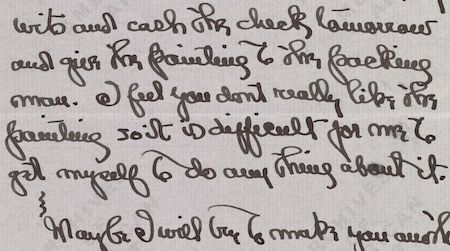 wits and cash the check tomorrow
and give the painting to the packing
man. I feel you dont really like the
painting so it is difficult for me to
get myself to do any thing about it.
Maybe I will try to make you anoth